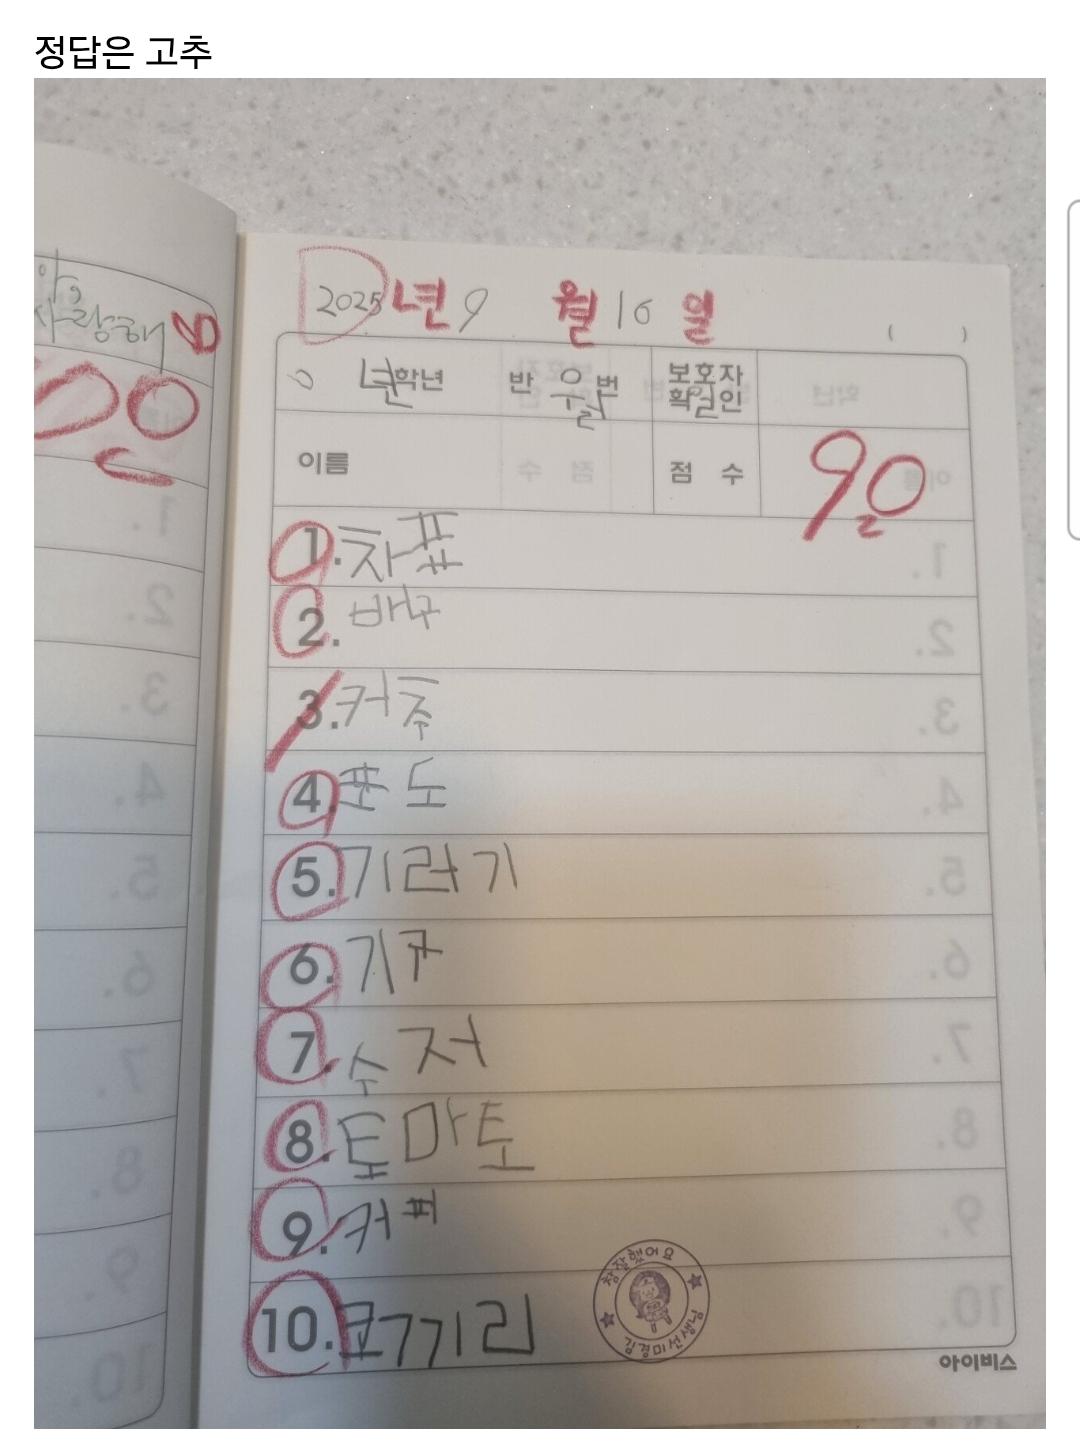 정답은 고추
사랑해
2025년 9 월 16 일
( )
년 학년 반 번 보호자 확인
이름 점 수 90
1. 차표
2. 배구
3. 커추
4. 포도
5. 기러기
6. 기구
7. 수저
8. 토마토
9. 커피
10. 코끼리
참잘했어요
김경미선생님
아이비스